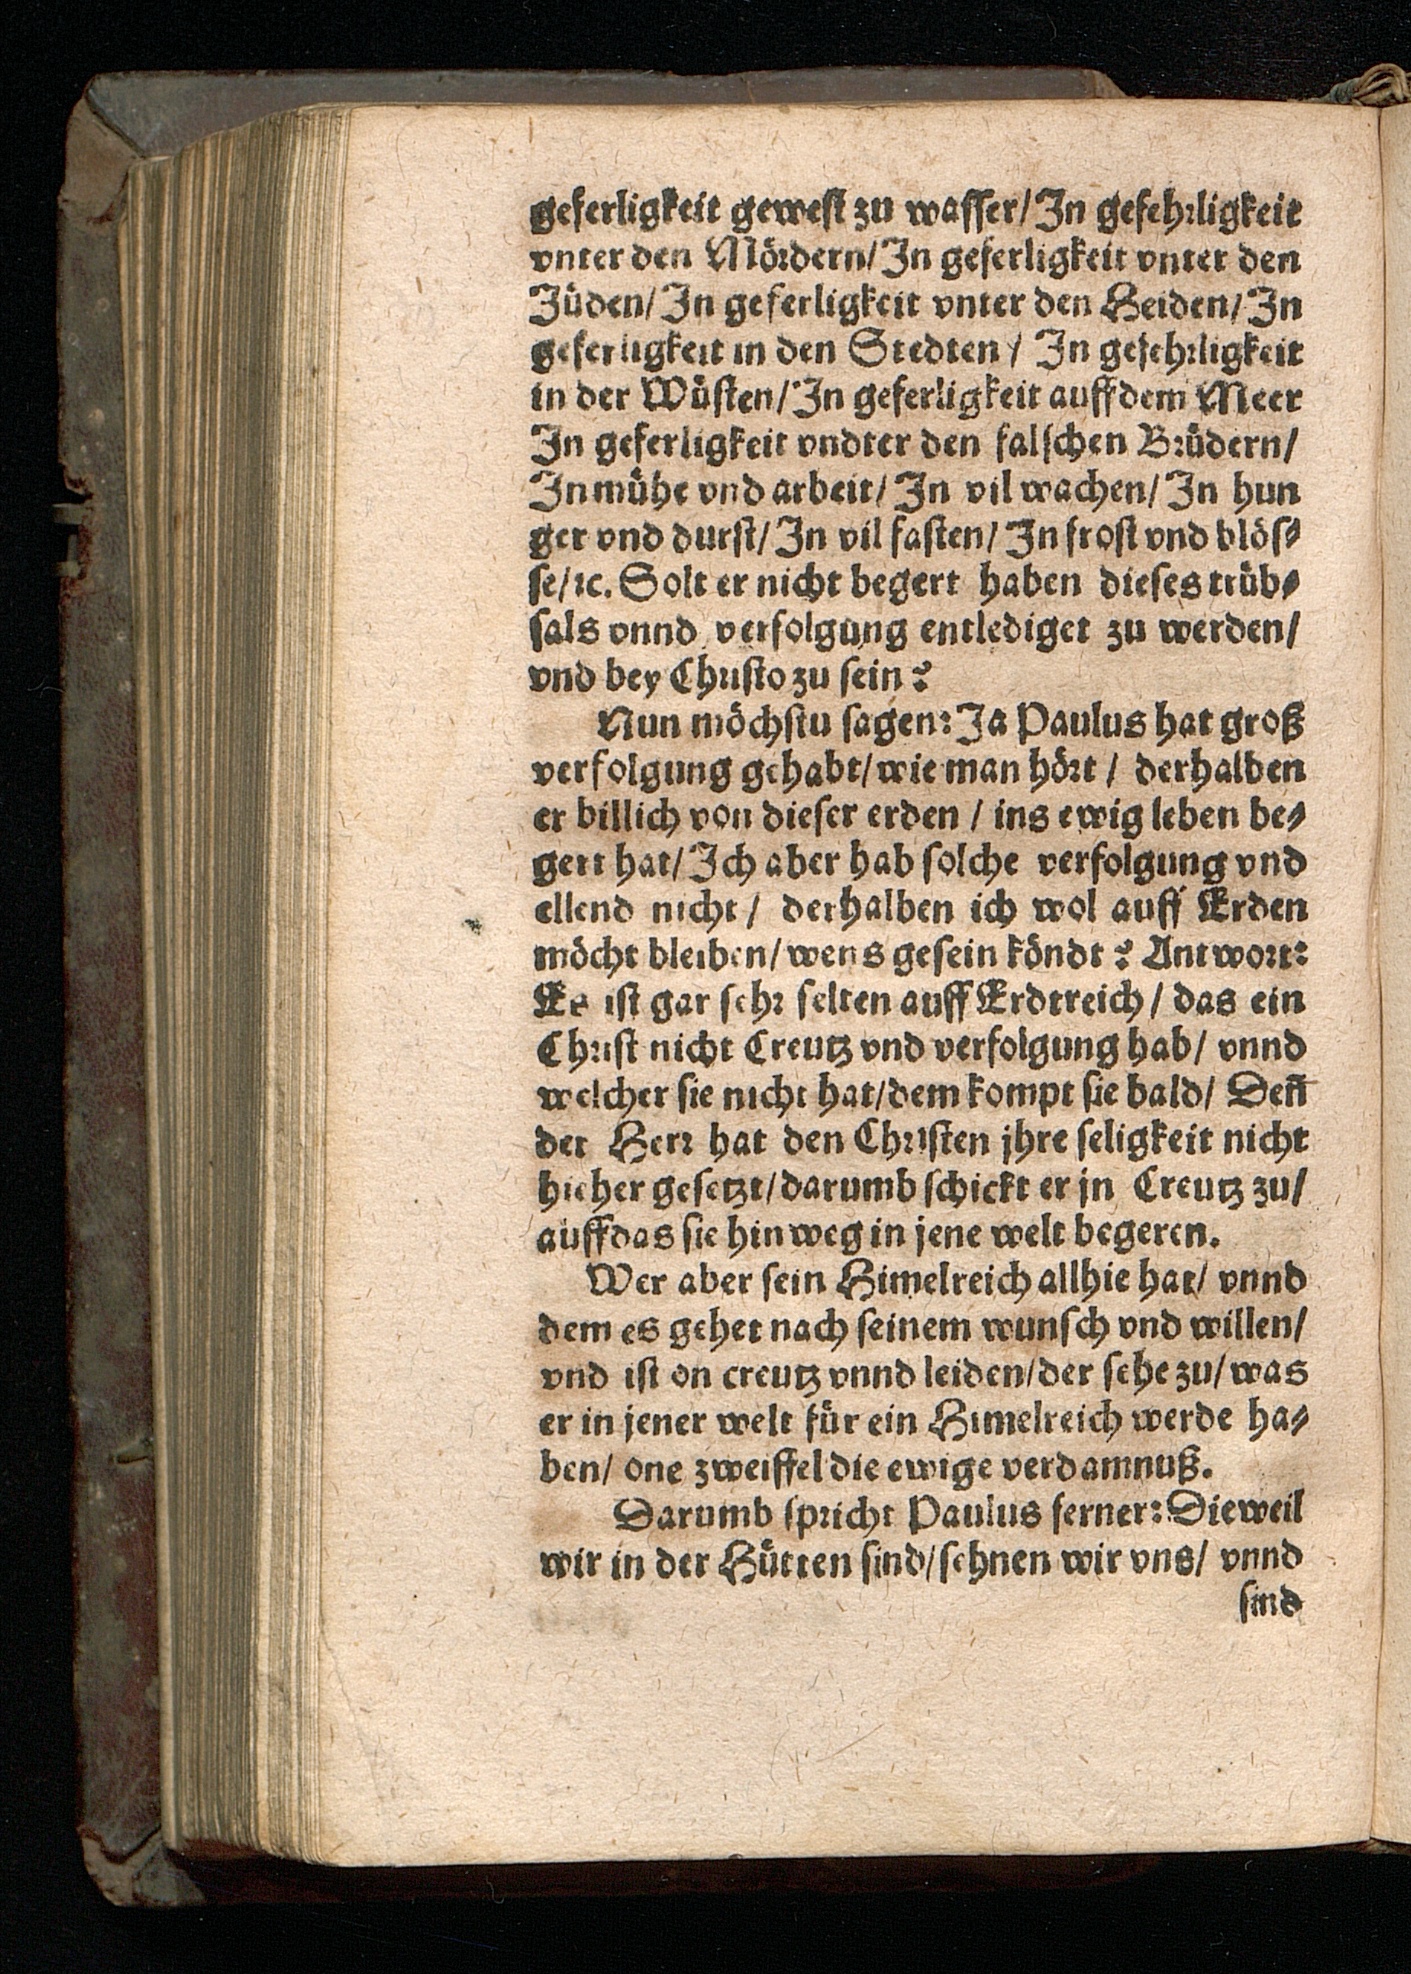 geferligkeit gewest zu wasser/ In gefehrligkeit
vnter den Mördern/ In geferligkeit vnter den
Jüden/ In geferligkeit vnter den Heiden/ In
geferligkeit in den Stedten/ In gefehrligkeit
in der Wüsten/ In geferligkeit auff dem Meer
In geferligkeit vndter den falschen Brüdern/
In mühe vnd arbeit/ In vil wachen/ In hun
ger vnd durst/ In vil fasten/ In frost vnd blös⸗
se/ ꝛc. Solt er nicht begert haben dieses trüb⸗
sals vnnd verfolgung entlediget zu werden/
vnd bey Christo zu sein?
Nun möchstu sagen: Ja Paulus hat groß
verfolgung gehabt/ wie man hört/ derhalben
er billich von dieser erden/ ins ewig leben be⸗
gert hat/ Ich aber hab solche verfolgung vnd
ellend nicht/ derhalben ich wol auff Erden
möcht bleiben/ wens gesein köndt? Antwort:
Es ist gar sehr selten auff Erdtreich/ das ein
Christ nicht Creutz vnd verfolgung hab/ vnnd
welcher sie nicht hat/ dem kompt sie bald/ Den̄
der Herr hat den Christen jhre seligkeit nicht
hieher gesetzt/ darumb schickt er jn Creutz zu/
auff das sie hinweg in jene welt begeren.
Wer aber sein Himelreich allhie hat/ vnnd
dem es gehet nach seinem wunsch vnd willen/
vnd ist on creutz vnnd leiden/ der sehe zu/ was
er in jener welt für ein Himelreich werde ha⸗
ben/ one zweiffel die ewige verdamnuß.
Darumb spricht Paulus ferner: Dieweil
wir in der Hütten sind/ sehnen wir vns/ vnnd
sind